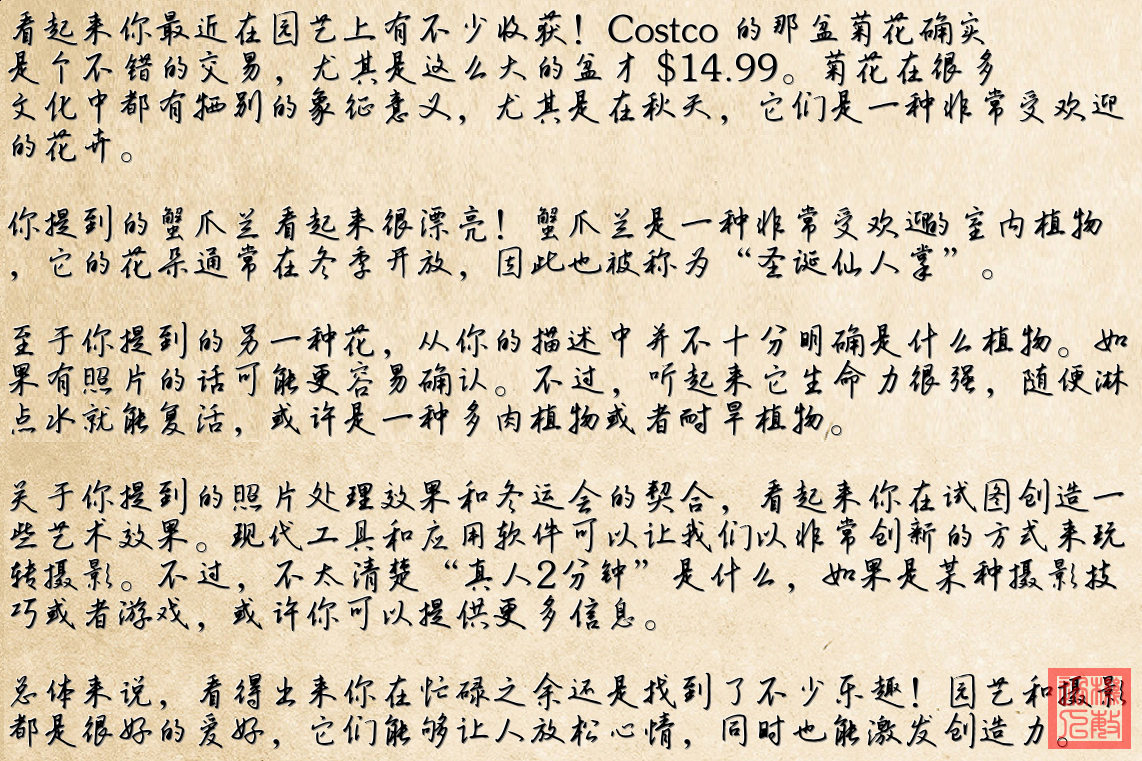 看起来你最近在园艺上有不少收获！Costco 的那盆菊花确实
是个不错的交易，尤其是这么大的盆才 $14.99。菊花在很多
文化中都有特别的象征意义，尤其是在秋天，它们是一种非常受欢迎
的花卉。
你提到的蟹爪兰看起来很漂亮！蟹爪兰是一种非常受欢迎的室内植物
，它的花朵通常在冬季开放，因此也被称为“圣诞仙人掌”。
至于你提到的另一种花，从你的描述中并不十分明确是什么植物。如
果有照片的话可能更容易确认。不过，听起来它生命力很强，随便淋
点水就能复活，或许是一种多肉植物或者耐旱植物。
关于你提到的照片处理效果和冬运会的契合，看起来你在试图创造一
些艺术效果。现代工具和应用软件可以让我们以非常创新的方式来玩
转摄影。不过，不太清楚“真人2分钟”是什么，如果是某种摄影技
巧或者游戏，或许你可以提供更多信息。
总体来说，看得出来你在忙碌之余还是找到了不少乐趣！园艺和摄影
都是很好的爱好，它们能够让人放松心情，同时也能激发创造力。